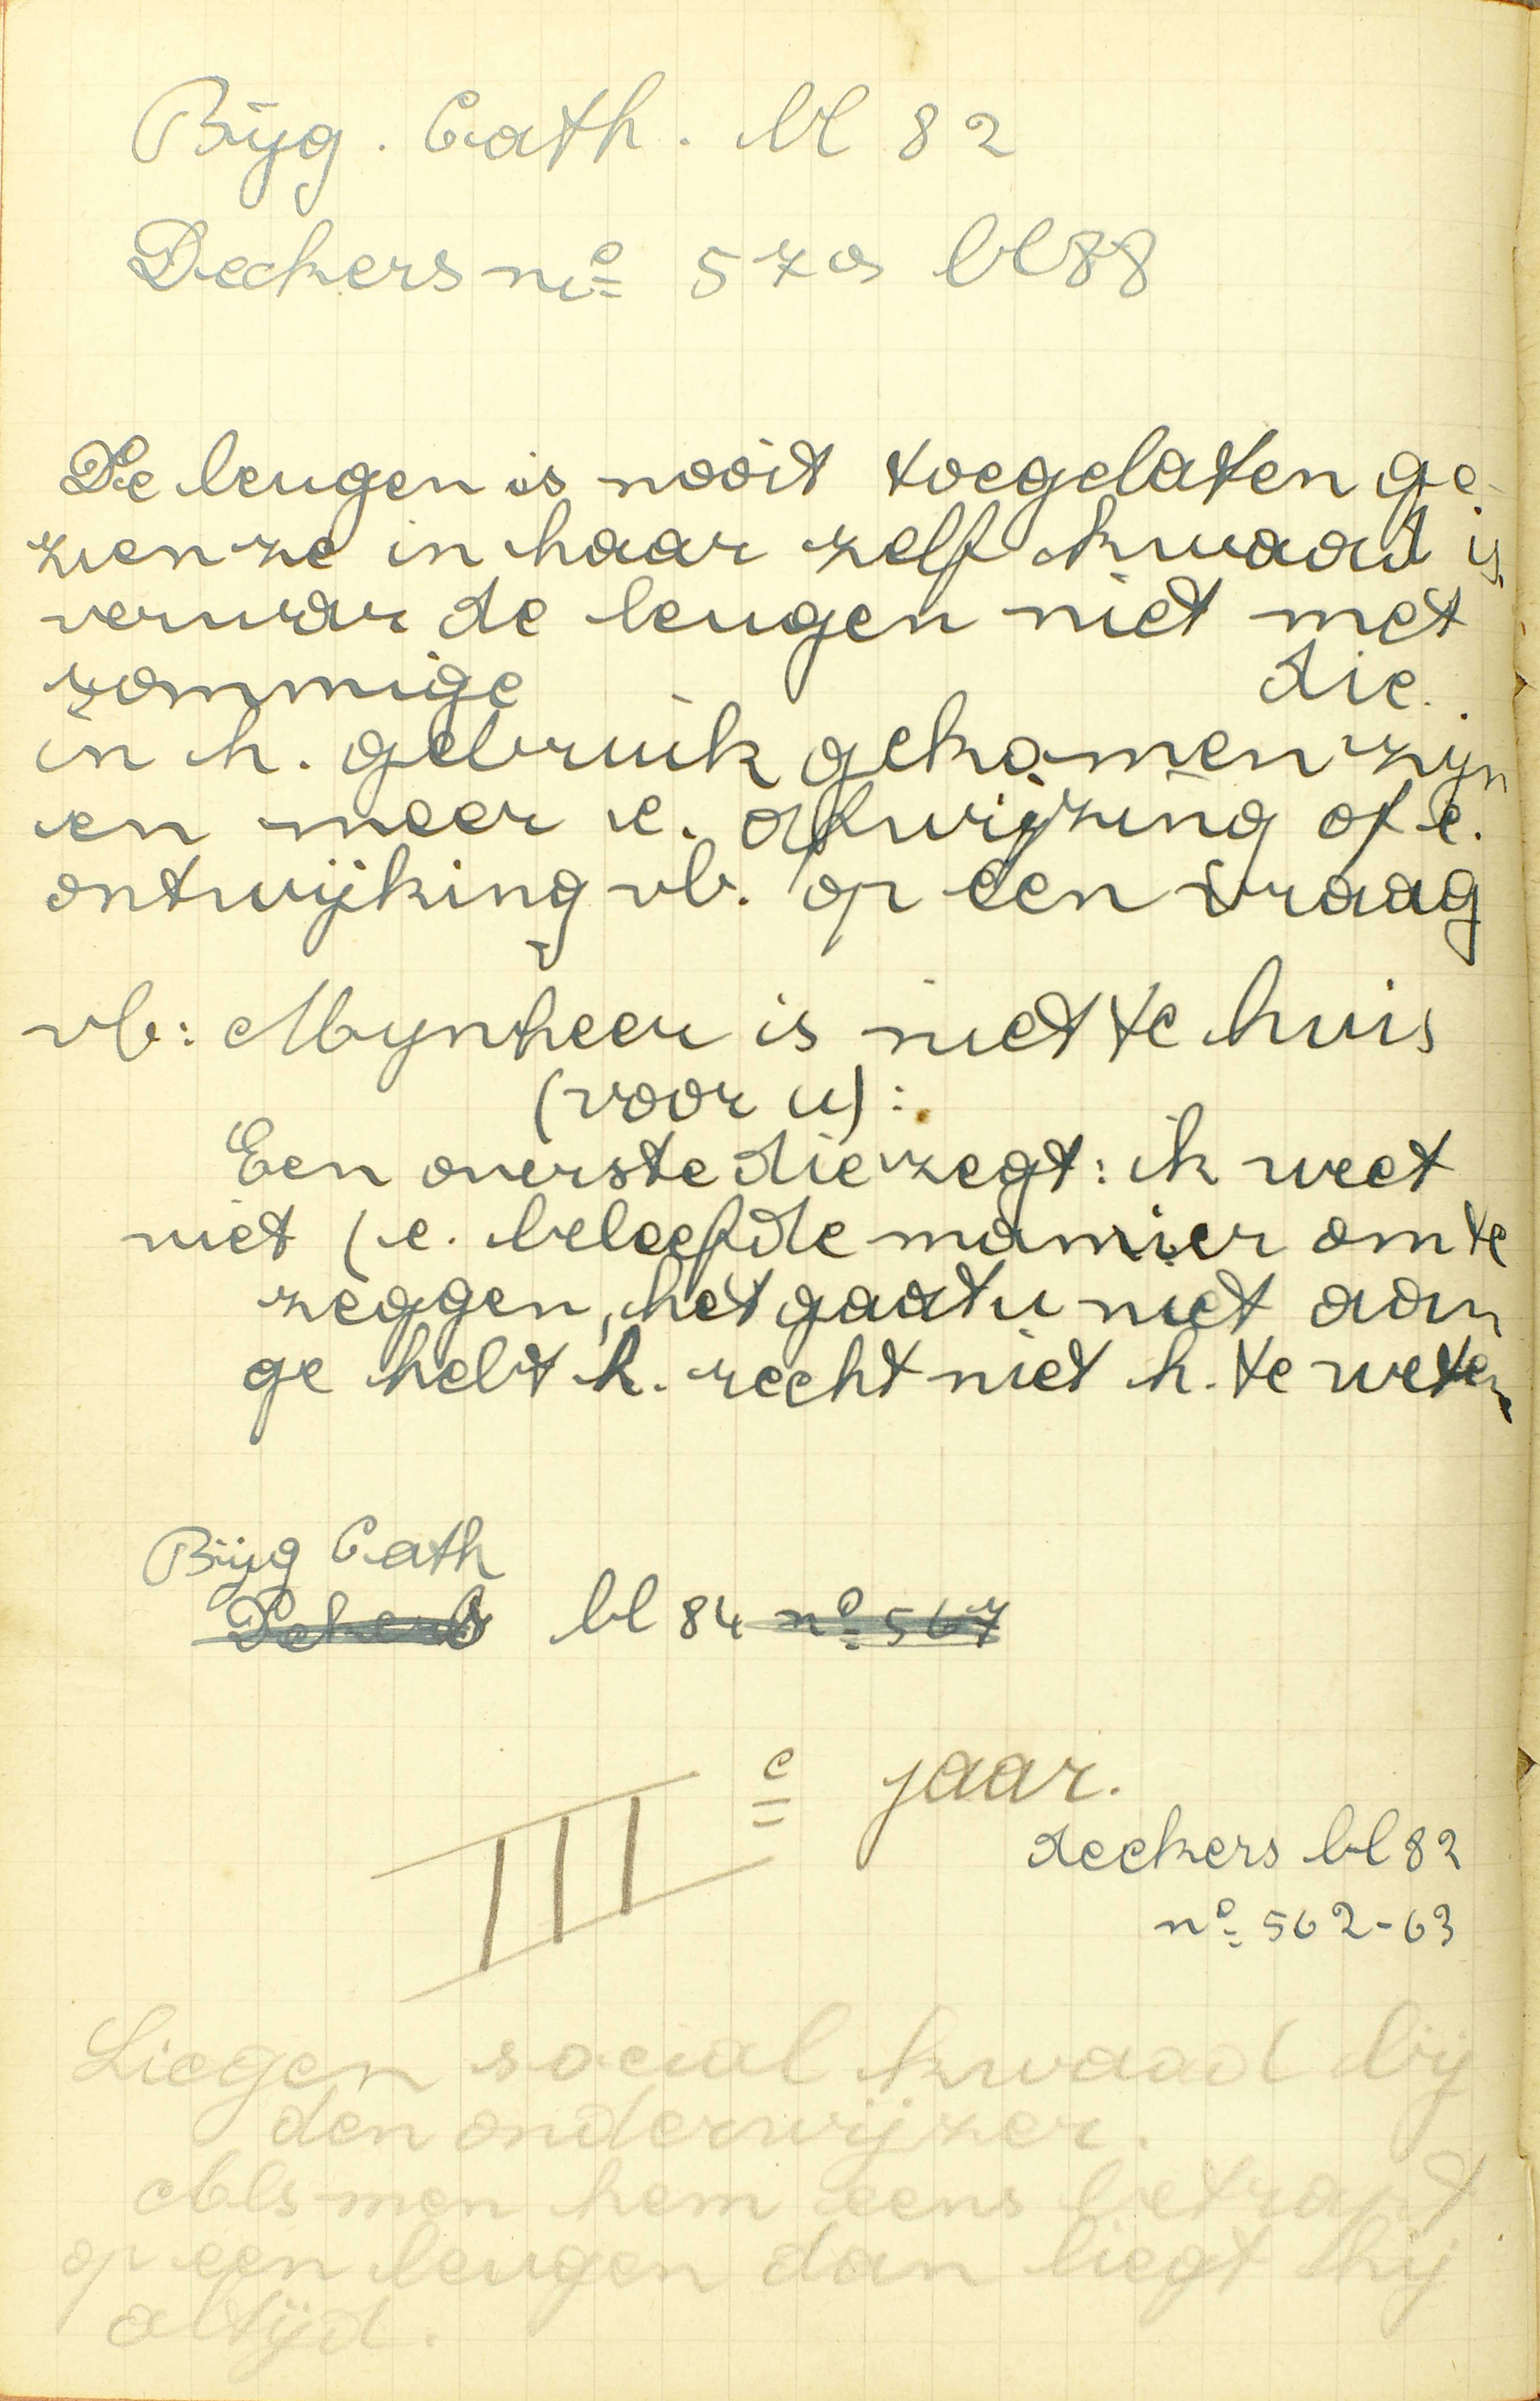 Bijg. Cath. bl 82
Deckers no 570 bl 88
De leugen is nooit toegelaten ge-
zien ze in haar zelf kwaad is
verwar de leugen niet met
sommige die
in h. gebruik gekomen zijn
en meer e. afwijzing of e.
ontwijking vb. op een vraag
vb: Mynheer is niet te huis
(voor u):
Een overste die zegt: ik weet
niet (e. beleefde manier om te
zeggen, het gaat u niet aan
ge hebt h. recht niet h. te weten
Bijg Cath
bl 84 no 567
III e jaar.
deckers bl 82
no 562-63
Liegen sociaal kwaad bij
den onderwijzer.
Als men hem eens betrapt
op een leugen dan liegt hij
altijd.